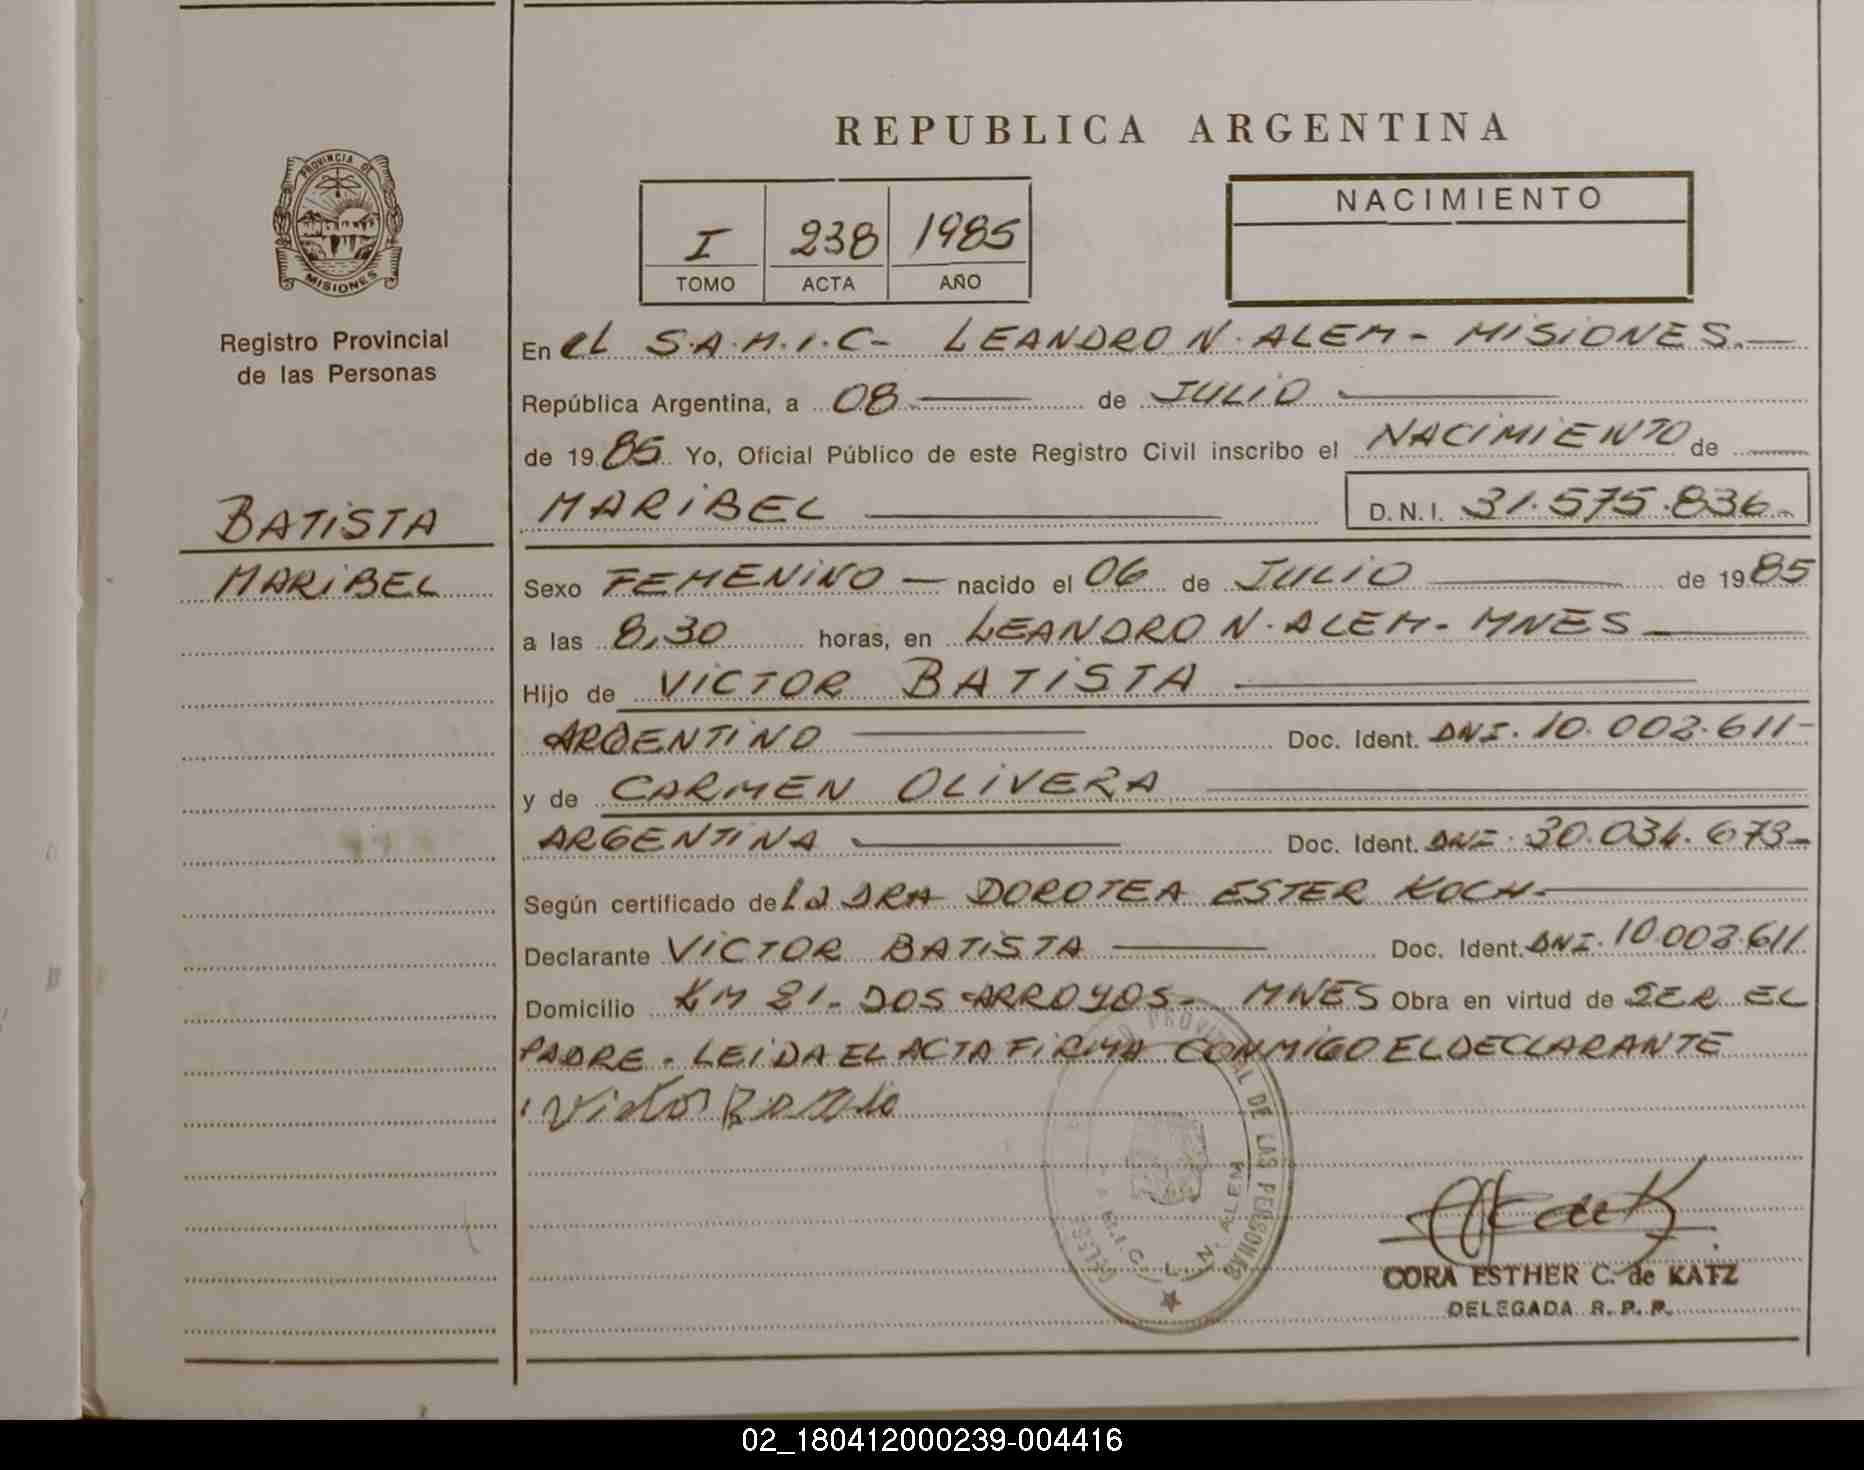 REPUBLICA ARGENTINA
PROVINCIA DE
MISIONES
Registro Provincial
de las Personas
BATISTA
MARIBEL
I 238 1985
TOMO ACTA AÑO
NACIMIENTO
En el S.A.M.I.C- LEANDRO N. ALEM - MISIONES.-
República Argentina, a 08 de JULIO
de 1985 Yo, Oficial Público de este Registro Civil inscribo el NACIMIENTO de
MARIBEL D.N.I. 31.575.836-
Sexo FEMENINO - nacido el 06 de JULIO de 1985
a las 8,30 horas, en LEANDRO N. ALEM - MNES
Hijo de VICTOR BATISTA
ARGENTINO Doc. Ident. DNI. 10.002.611-
y de CARMEN OLIVERA
ARGENTINA Doc. Ident. DNI. 30.034.673-
Según certificado de la DRA DOROTEA ESTER KOCH-
Declarante VICTOR BATISTA Doc. Ident. DNI. 10.002.611
Domicilio KM 21- DOS ARROYOS- MNES Obra en virtud de SER EL
PADRE. LEIDA EL ACTA FIRMA CONMIGO EL DECLARANTE
PROVINCIAL DE LAS PERSONAS
L. N. ALEM
CORA ESTHER C. de KATZ
DELEGADA R. P. P.
02_180412000239-004416